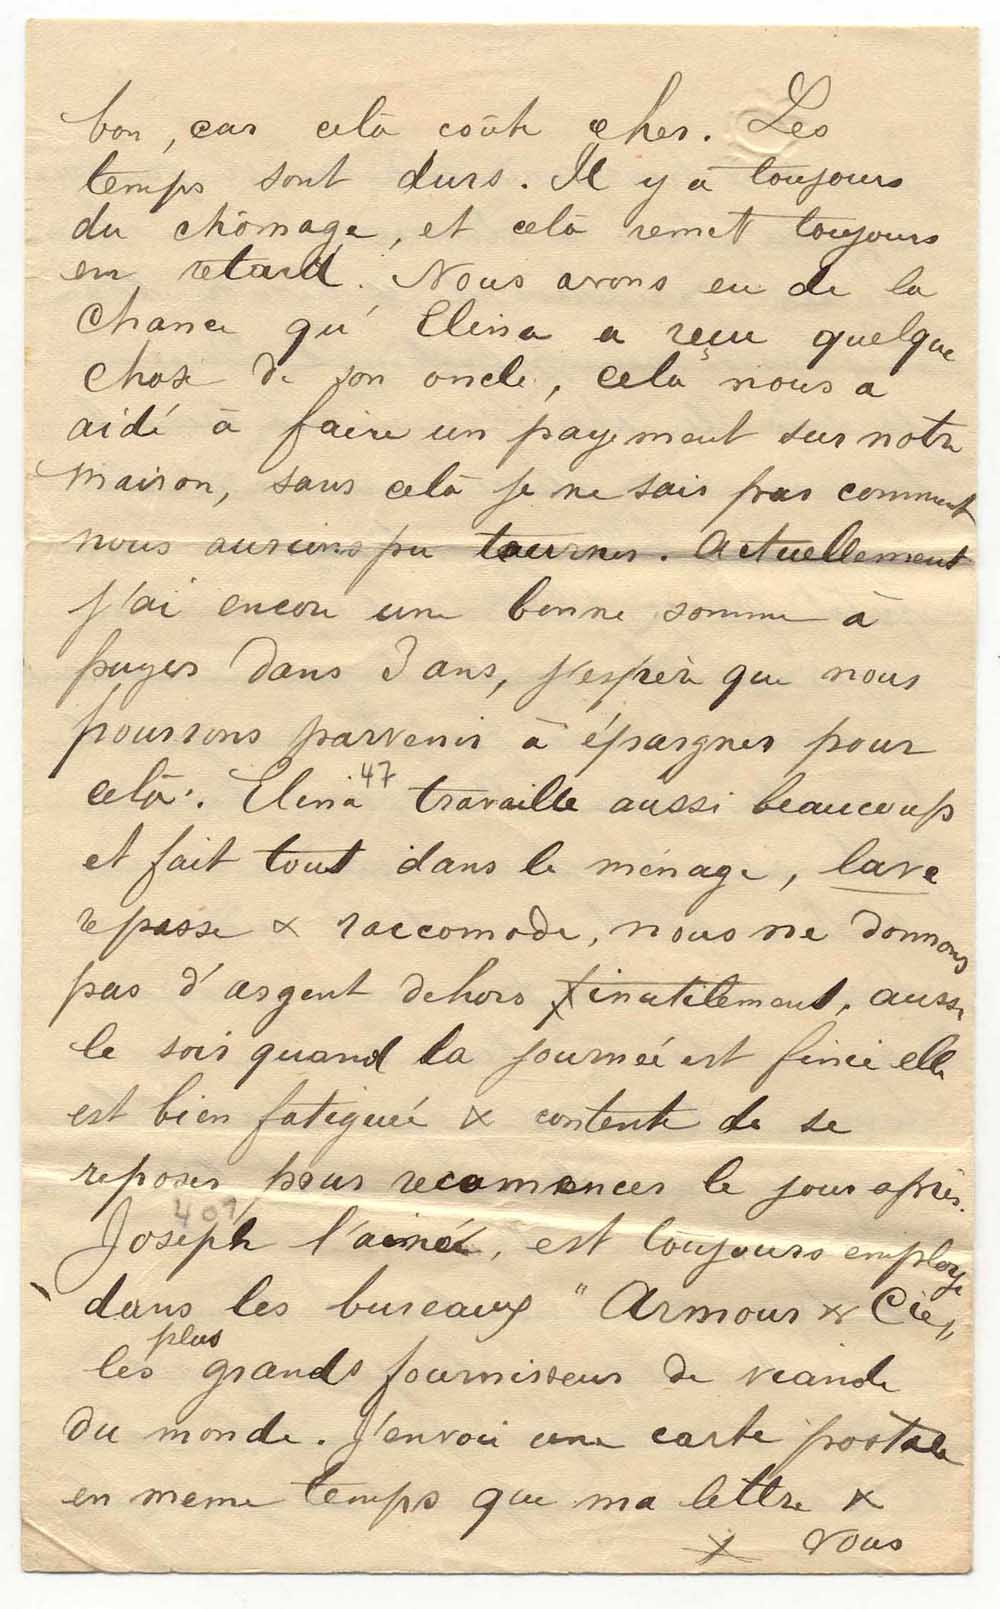 bon, car celà coûte cher. Les
temps sont durs. Il y a toujours
du chômage, et celà remet toujours
en retard. Nous avons eu de la
chance qu' Elina a reçu quelque
chose de son oncle, cela nous a
aidé à faire un payement sur notre
maison, sans celà je ne sais pas comment
nous aurions pu tourner. Actuellement
j'ai encore une bonne somme à
payer dans 3 ans, j'espère que nous
pourrons parvenir à épargner pour
celà. Elina 47 travaille aussi beaucoup
et fait tout dans le ménage, lave
repasse & raccomode, nous ne donnons
pas d'argent dehors inutilement, aussi
le soir quand la journée est finie elle
est bien fatiguée & contente de se
reposer pour recomencer le jour après.
409
Joseph l'ainé, est toujours employé
dans les bureaux "Armour & Cie"
les plus grands fournisseur de viande
du monde. J'envoie une carte postale
en meme temps que ma lettre &
x vous